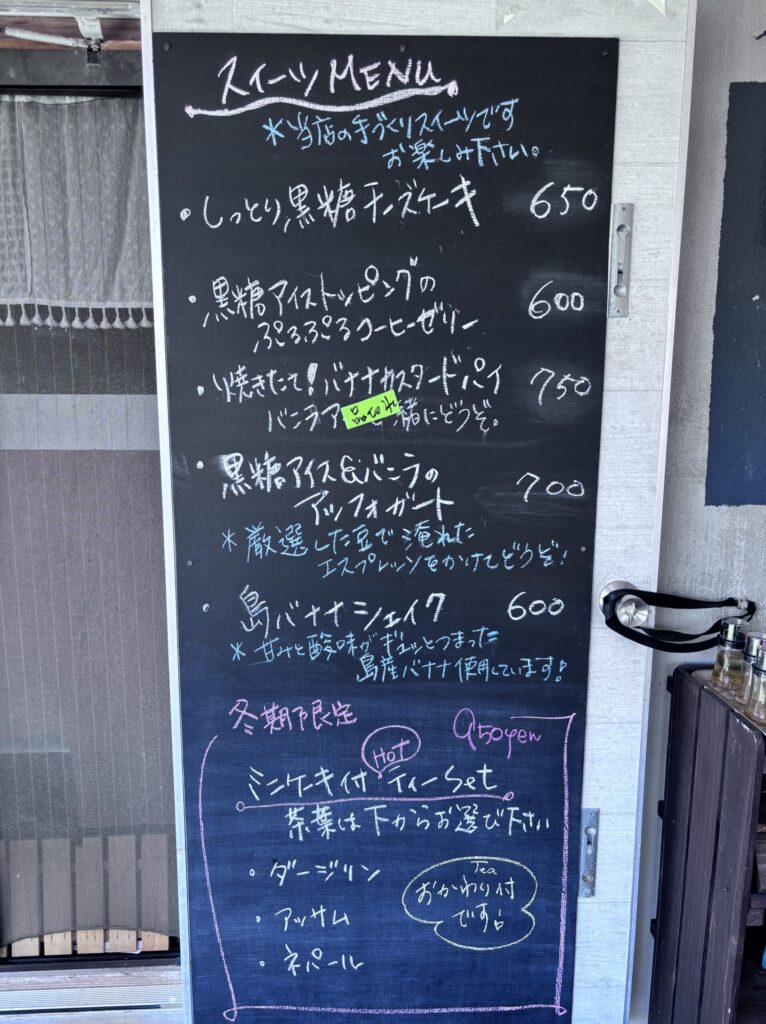 スイーツMENU
*当店の手づくりスイーツです
お楽しみ下さい。
・しっとり黒糖チーズケーキ 650
・黒糖アイストッピングの
ぷるぷるコーヒーゼリー 600
・焼きたて!バナナカスタードパイ 750
バニラア 緒にどうぞ。
・黒糖アイス&バニラの
アッフォガート 700
*厳選した豆で淹れた
エスプレッソをかけてどうぞ!
・島バナナシェイク 600
*甘みと酸味がギュッとつまった
島産バナナ使用しています!
冬期限定
950yen
HOT
ミニケーキ付 ティーSet
茶葉は下からお選び下さい
・ダージリン
・アッサム
・ネパール
Tea
おかわり付
です